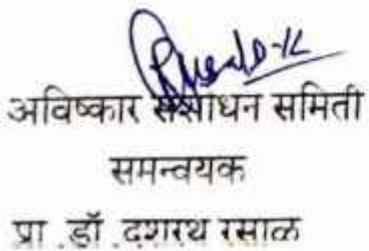 अविष्कार संशोधन समिती
समन्वयक
प्रा .डॉ .दशरथ रसाळ